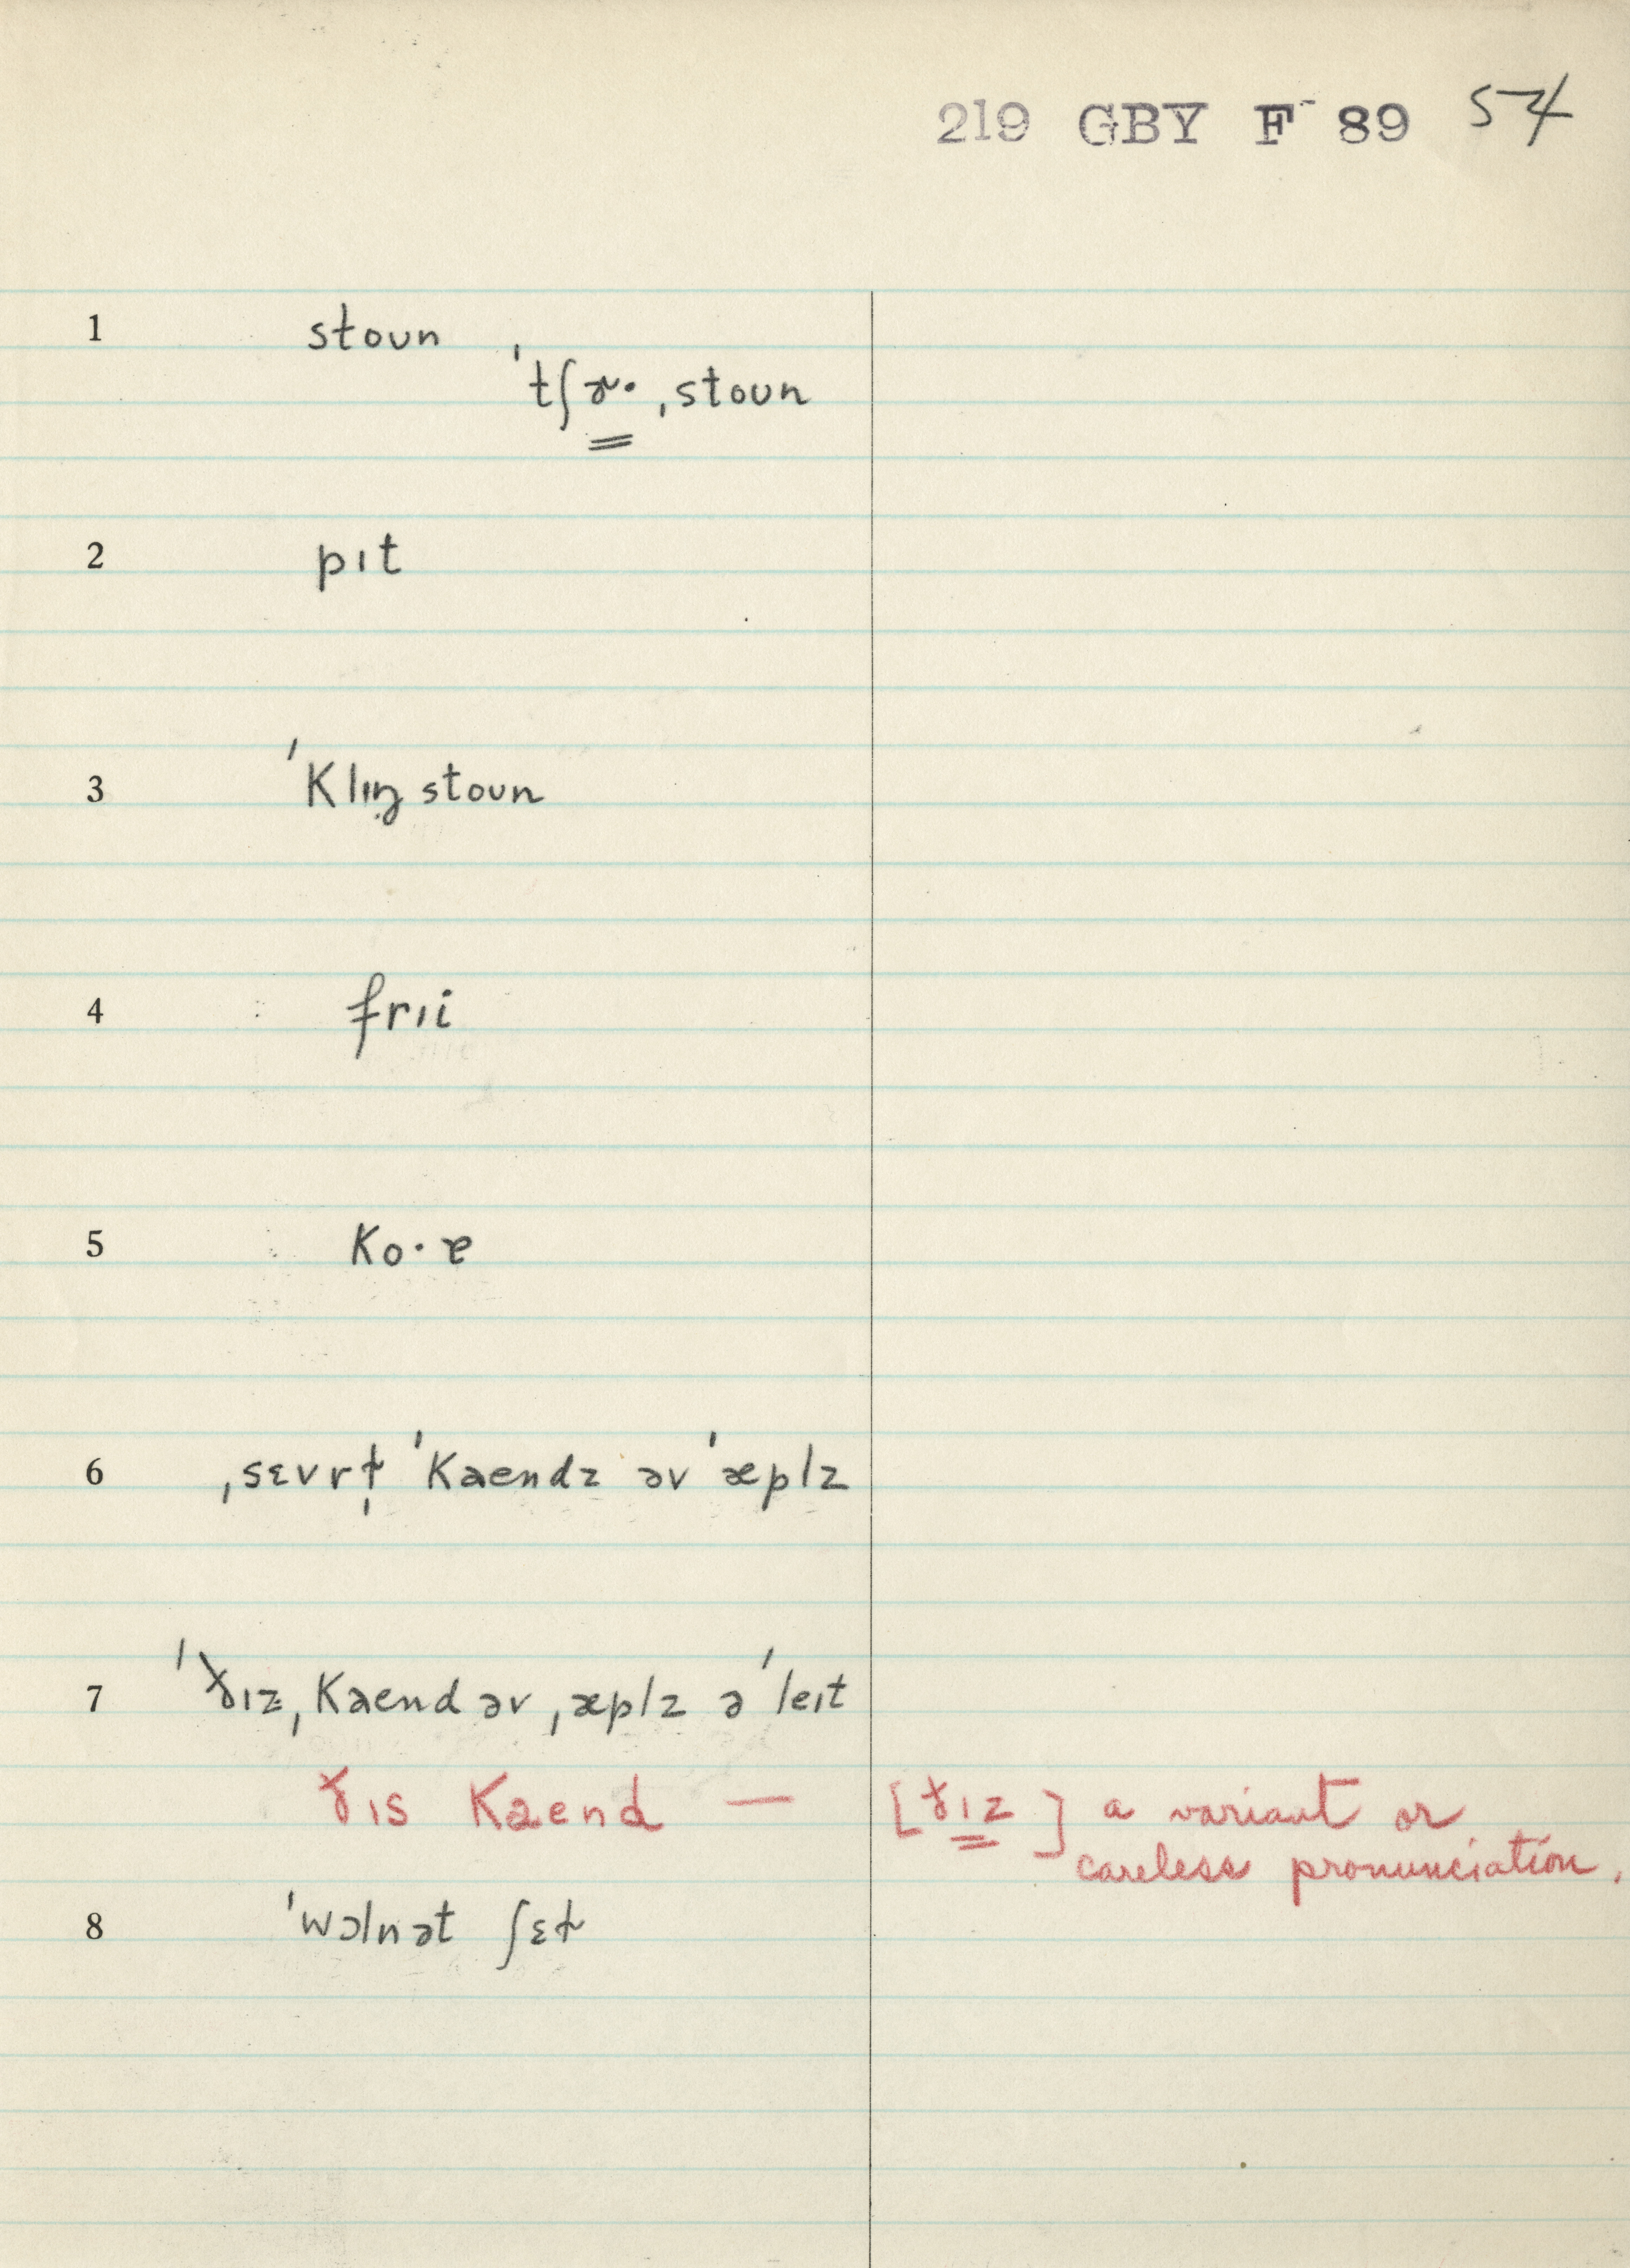 219 GBY F 89 54
1 stoun
ˈtʃɚ· ˌstoun
2 pɪt
3 ˈklɪŋ̣stoun
4 frɪi
5 ko·ɐ
6 ˌsɛvrɫ̩ ˈkaendz əv ˈæplz
7 ˈðɪz ˌkaend əv ˌæplz ə ˈleɪt
ðɪs kaend — [ðɪz] a variant or
careless pronunciation.
8 ˈwɔlnət ʃɛɫ